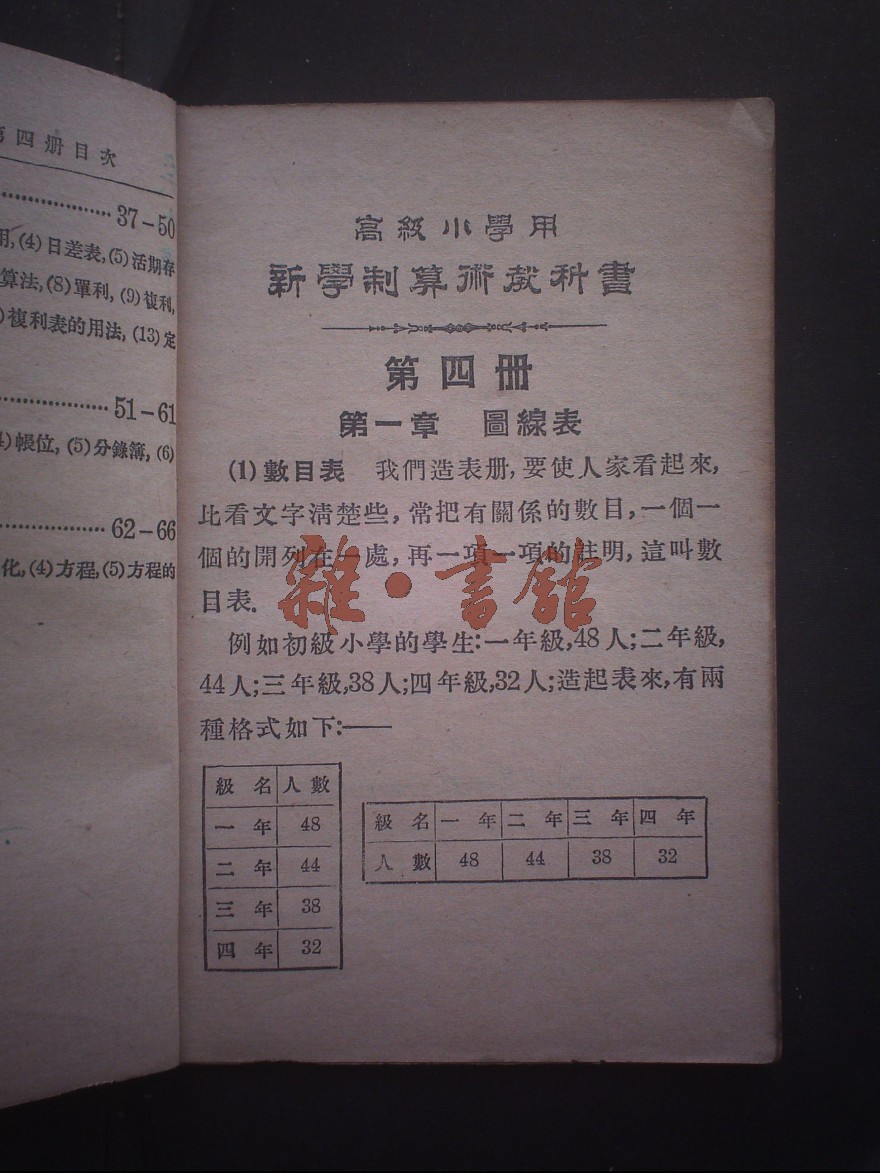 第四册目次
37-50
用,(4)日差表,(5)活期存
算法,(8)單利,(9)複利,
)複利表的用法,(13)定
51-61
)帳位,(5)分錄簿,(6)
62-66
化,(4)方程,(5)方程的
高級小學用
新學制算術教科書
第四册
第一章 圖線表
(1)數目表 我們造表册,要使人家看起來,
比看文字清楚些,常把有關係的數目,一個一
個的開列在一處,再一項一項的註明,這叫數
目表.
雜·書館
例如初級小學的學生:一年級,48人;二年級,
44人;三年級,38人;四年級,32人;造起表來,有兩
種格式如下:——
級名 人數
一年 48
二年 44
三年 38
四年 32
級名 一年 二年 三年 四年
人數 48 44 38 32